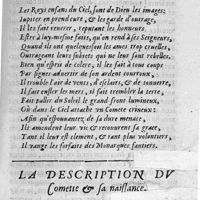 Les Roys enfans du Ciel, sont de Dieu les images:
Iupiter en prend cure, & les garde d'outrage,
Il les fait reuerer, reputant les honneurs,
Estre à luy-mesme faits, qu'on rend à ses Seigneurs,
Quand ils ont quelquesfois les ames trop cruelles,
Outrageans leurs subiets qui ne leur sont rebelles,
Bien qu'espris de colere, il les fait à tous coups
Par signes aduertir de son ardent courroux,
Il trouble l'air de vents, d'esclairs, & de tonnerre,
Il fait enfler les mers, il fait trembler la terre,
Fait pallir du Soleil le grand front lumineux,
Où dans le Ciel attache vn Comete crineux:
Afin qu'espouuantez de sa dure menace,
Ils amendent leur vie & recourent sa grace,
Tant il leur est clement, & tant plus volontiers,
Il range les forfaits des Monarques sautiers.
LA DESCRIPTION DV
Comette & sa naissance.